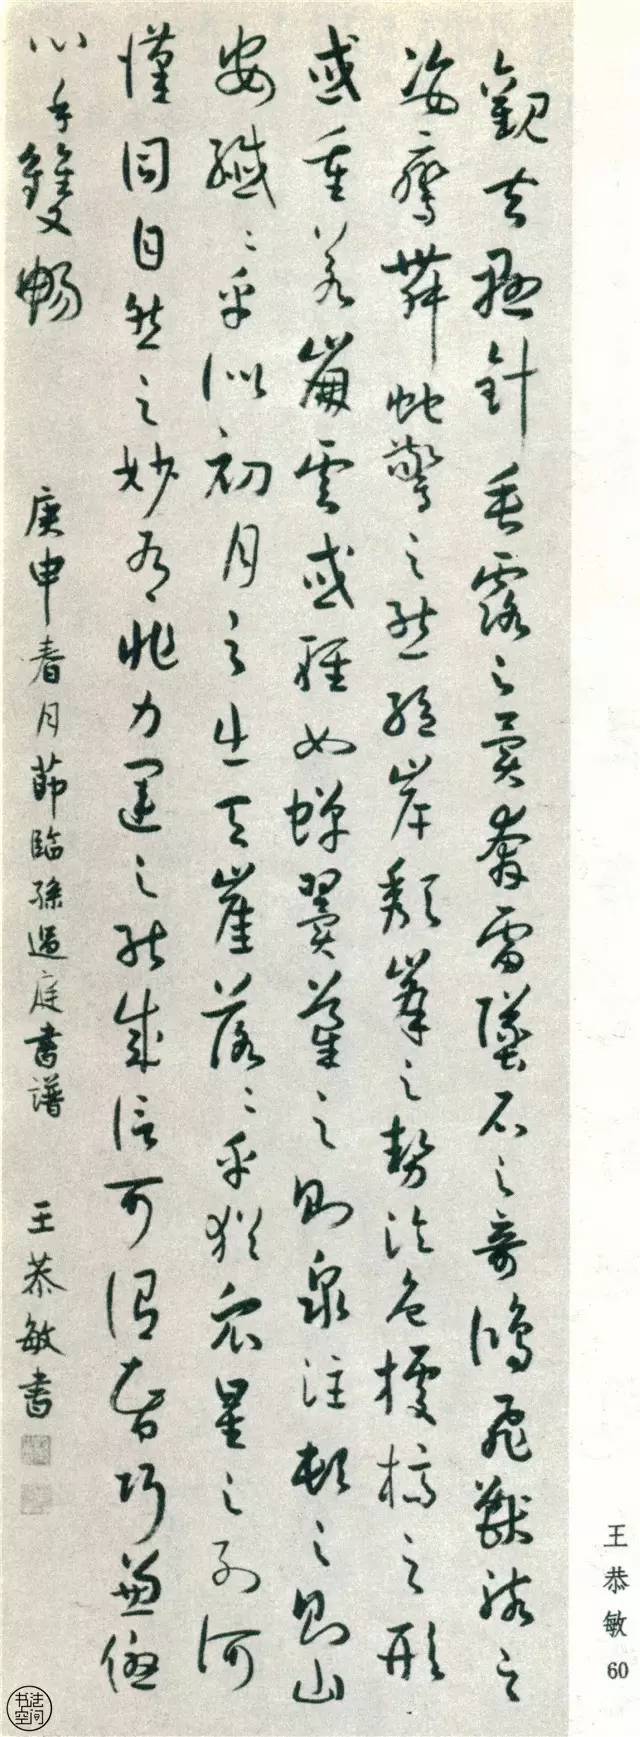 觀夫懸針垂露之異奔雷墜石之奇鴻飛獸駭之
姿鸞舞蛇驚之態絕岸頹峯之勢臨危據槁之形
或重若崩雲或輕如蟬翼導之則泉注頓之則山
安纖〻乎似初月之出天崖落〻乎猶眾星之列河
漢同自然之妙有非力運之能成信可謂智巧兼優
心手雙暢
庚申春月節臨孫過庭書譜 王恭敏書
王恭敏 60
书法空间